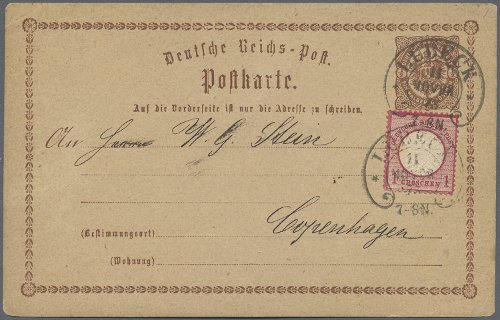 Deutsche Reichs-Post.
Postkarte.
LÜBECK
Auf die Vorderseite ist nur die Adresse zu schreiben.
An Herrn W. G. Stein
11
1 GROSCHEN 1
7-8N.
Copenhagen
(Bestimmungsort)
(Wohnung)